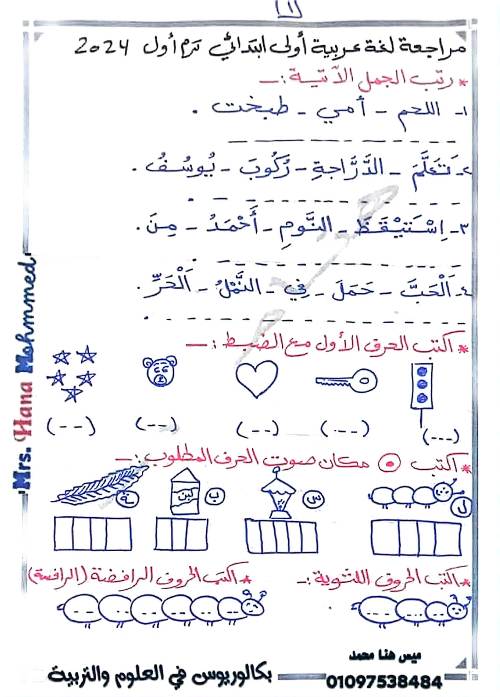 (١)
مراجعة لغة عربية أولى ابتدائي ترم أول 2024
* رتب الجمل الآتية :ـ
١- اللحم - أمي - طبخت .
٢- تَعَلَّمَ - الدَّرَّاجةِ - رُكُوبَ - يُوسُفُ .
٣- اِسْتَيْقَظَ - النَّومِ - أَحْمَدُ - مِنَ .
٤- اَلْحَبَّ - حَمَلَ - فِي - النَّمْلُ - اَلْحَرِّ .
* اكتب الحرف الأول مع الضبط :ـ
(--) (--) (--) (---) (---)
* اكتب ⊙ مكان صوت الحرف المطلوب :ـ
ل س ب لبن
* اكتب الحروف اللثوية :ـ * اكتب الحروف الرافضة (الرافسة)
Mrs. Hana Mohmmed
ميس هنا محمد
01097538484 بكالوريوس في العلوم والتربية